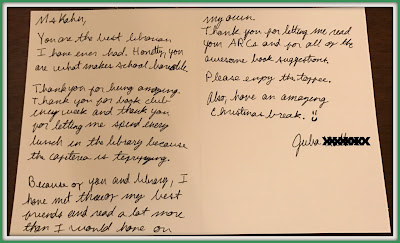 Ms Kahn,
You are the best librarian
I have ever had. Honestly, you
are what makes school bearable.
Thank you for being amazing.
Thank you for book club
every week and thank you
for letting me spend every
lunch in the library because
the cafeteria is terrifying.
Because of you and library, I
have met three of my best
friends and read a lot more
than I would have on
my own.
Thank you for letting me read
your ARCs and for all of the
awesome book suggestions.
Please enjoy the toffee.
Also, have an amazing
Christmas break.
Julia